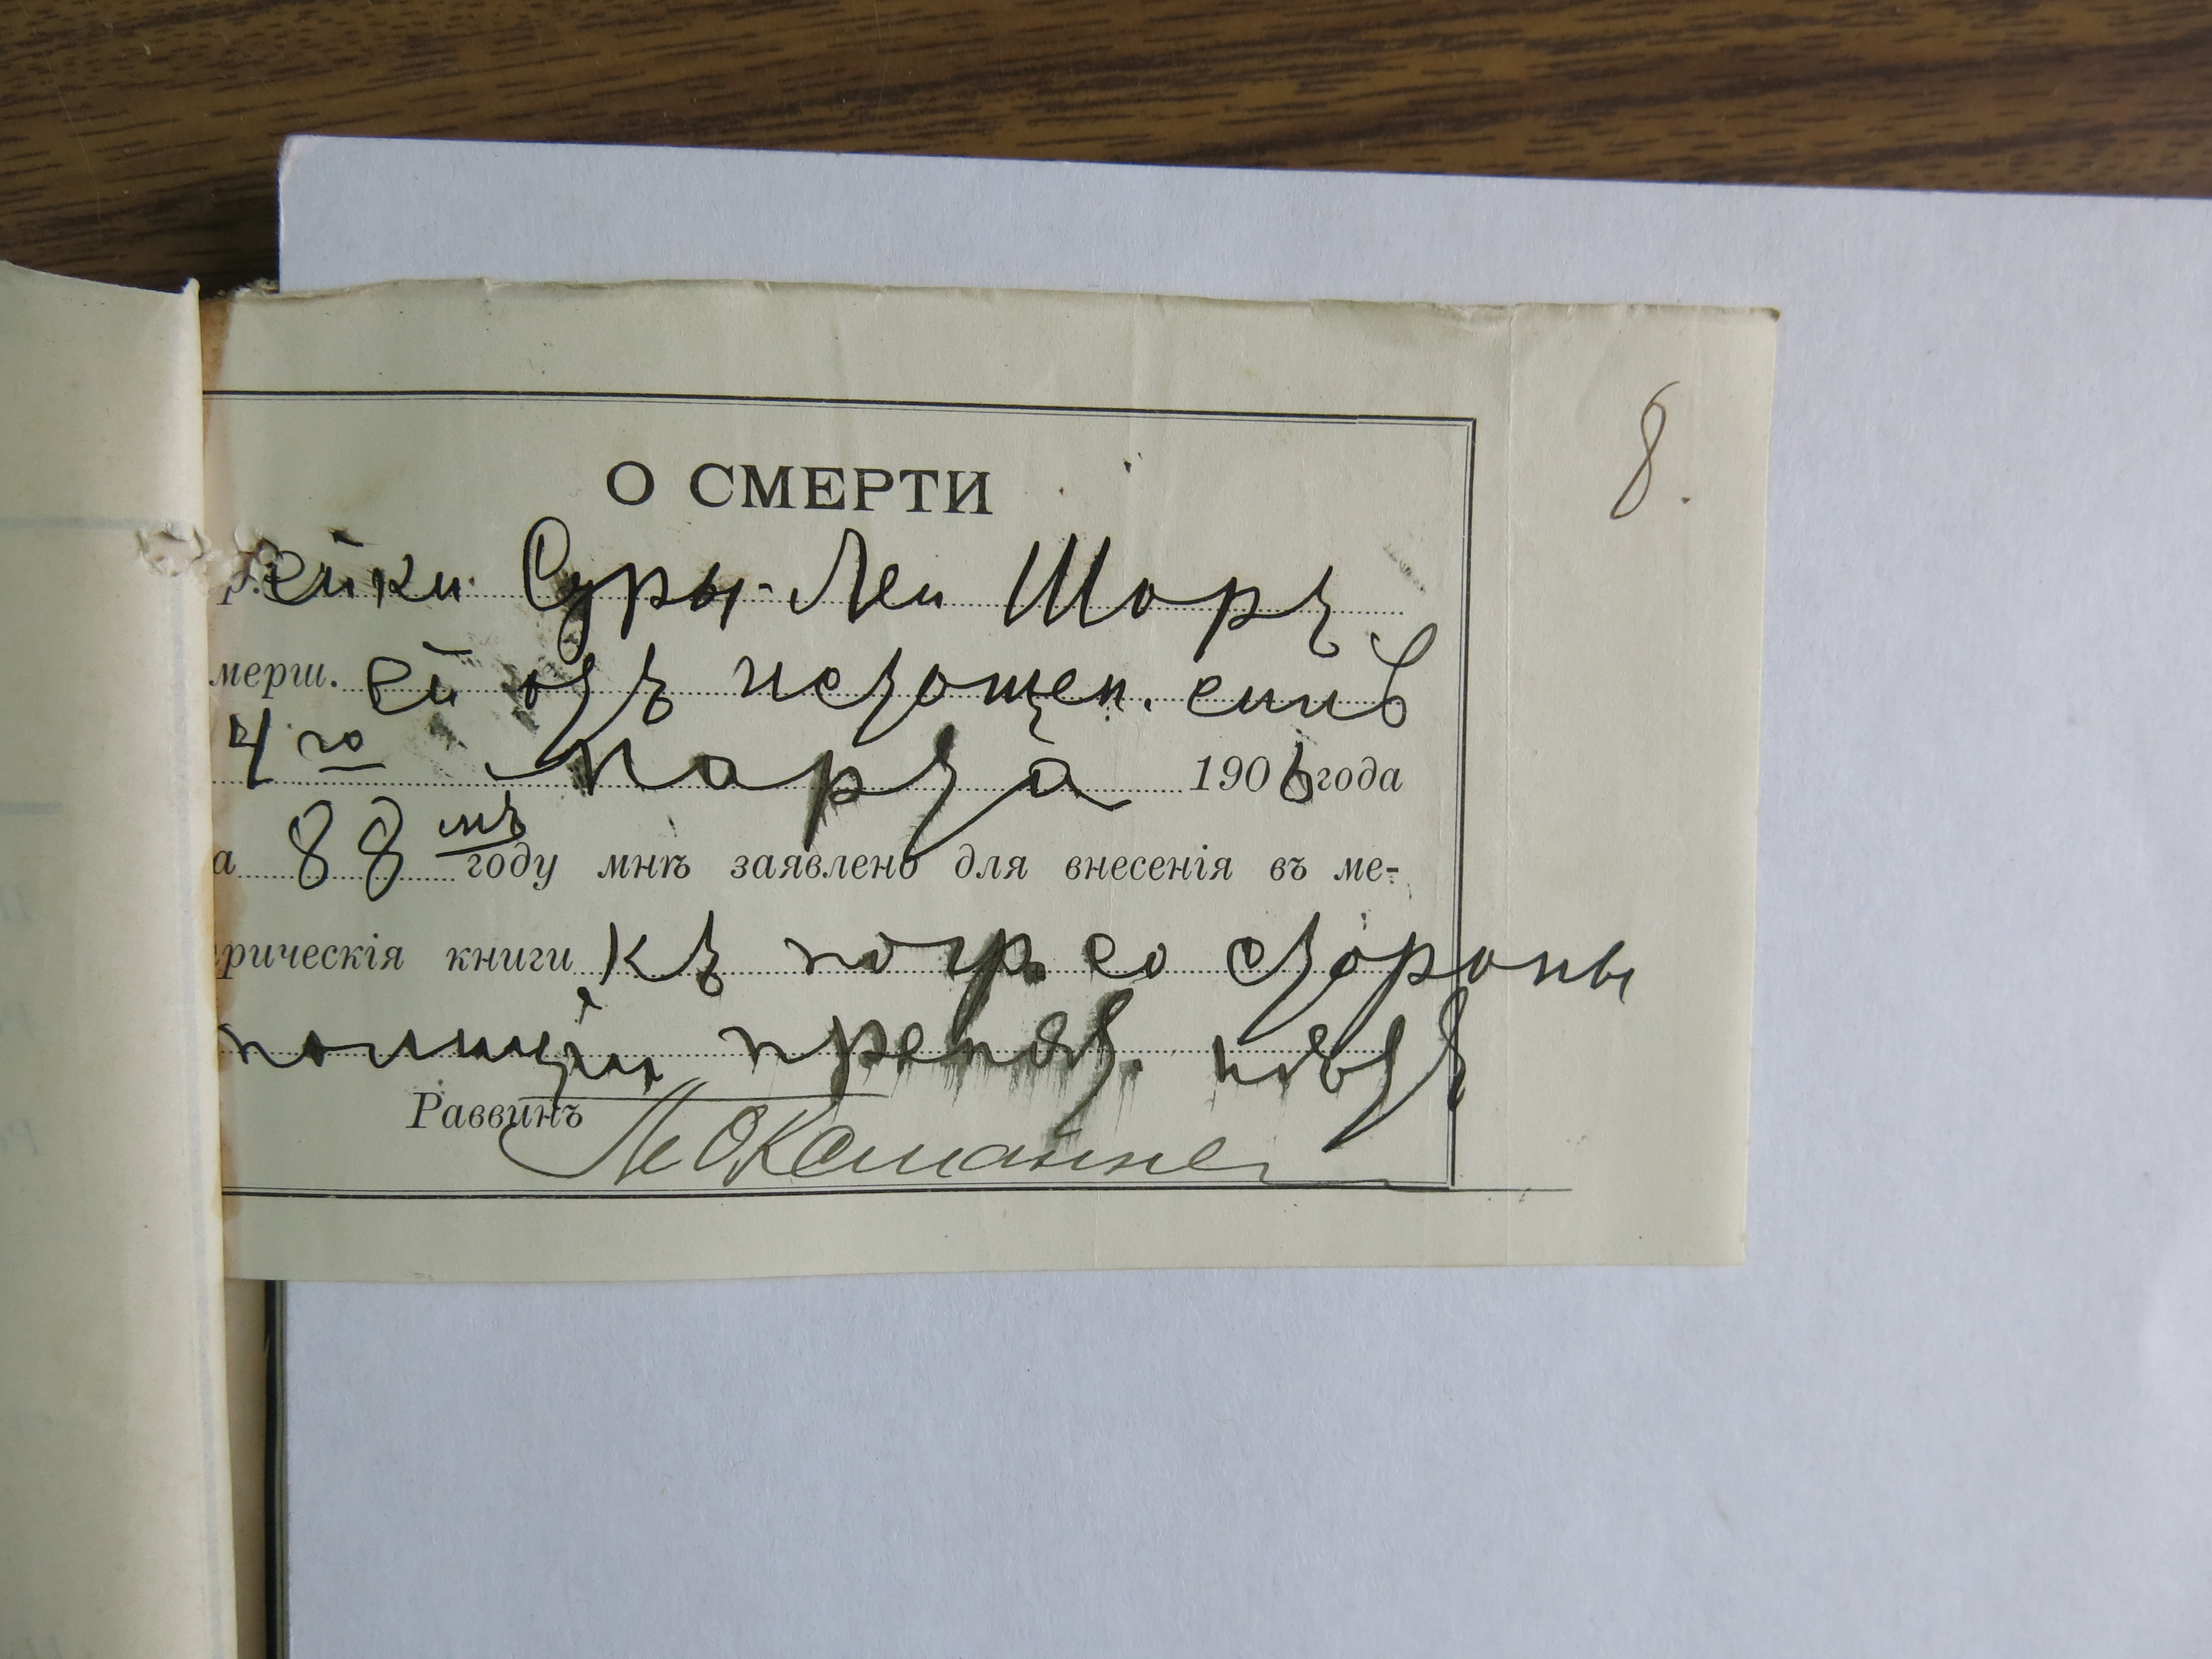 8.
О СМЕРТИ
р. ейки Суры-Леи Шоръ
мерш. ей отъ истощен. силъ
4го Марта 1906 года
а 88мъ году мнѣ заявлено для внесенія въ ме-
рическія книги къ погр. со стороны
полиціи препят. нѣтъ
Раввинъ